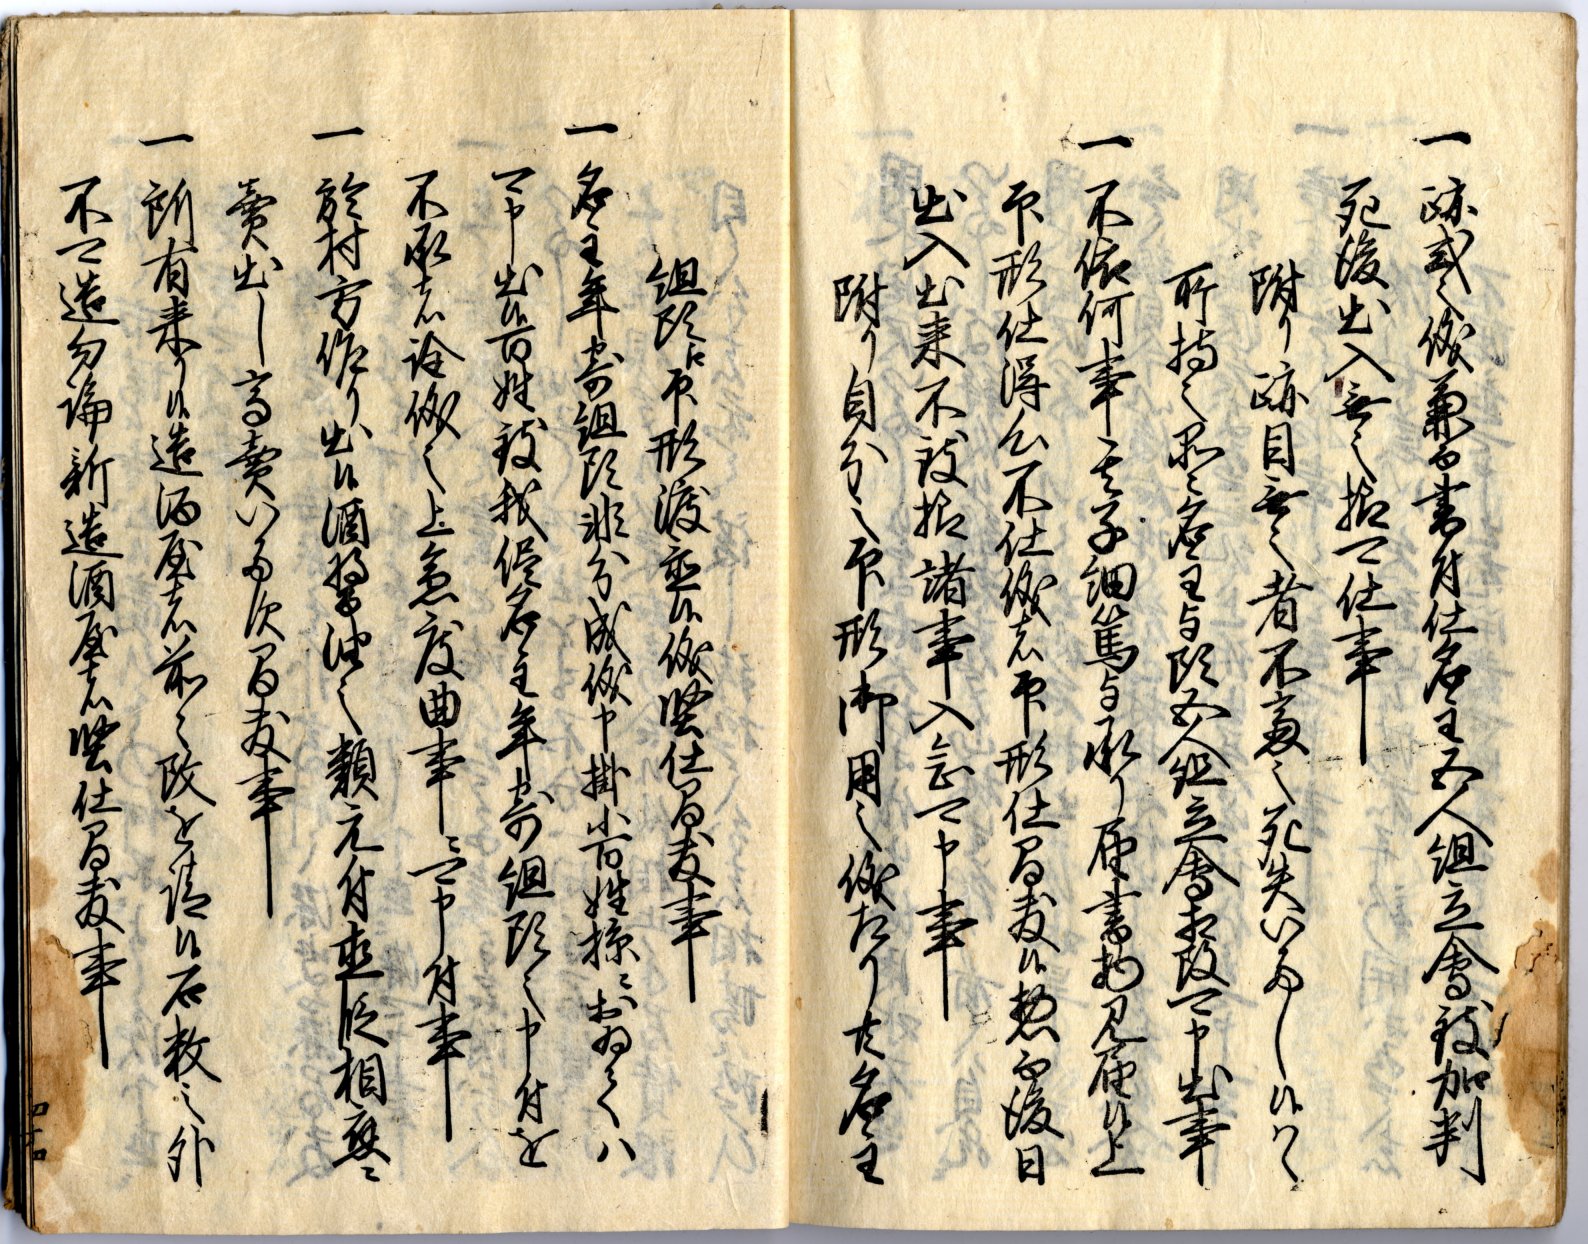 一 跡式之儀兼而書付仕名主五人組立会致加判
死後出入無之様可仕事
附り跡目無之者不慮之死失いたし候ハヽ
所持之品々名主与頭五人組立会相改可申出事
一 不依何事其子細篤与承り届書物見届候上
印形仕得心不仕儀者印形仕間敷候惣而後日
出入出来不致様諸事入念可申事
附り自分之印形御用之儀たり共名主
組頭占印形渡置候儀堅仕間敷事
一 名主年寄組頭非分成儀申掛小百姓掠ニおゐてハ
可申出候百姓致我侭名主年寄組頭之申付を
不承者詮儀之上急度曲事ニ可申付事
一 於村方作り出候酒醤油之類元付直段相応ニ
売出し高売いたす間敷事
一 所有来り候造酒屋者前々改を請候石数之外
不可造勿論新造酒屋者堅仕間敷事